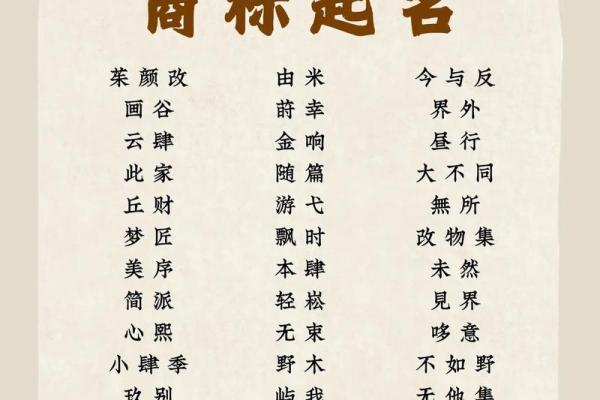 商标起名
茱颜改 由米 今与反
画谷 莳幸 界外
云肆 金响 昼行
此家 随篇 大不同
丘财 游弋 無所
梦匠 飘时 改物集
美序 本肆 未然
简派 轻崧 見界
心熙 无束 哆意
小肆季 野木 不如野
玖别 屿我 无他集